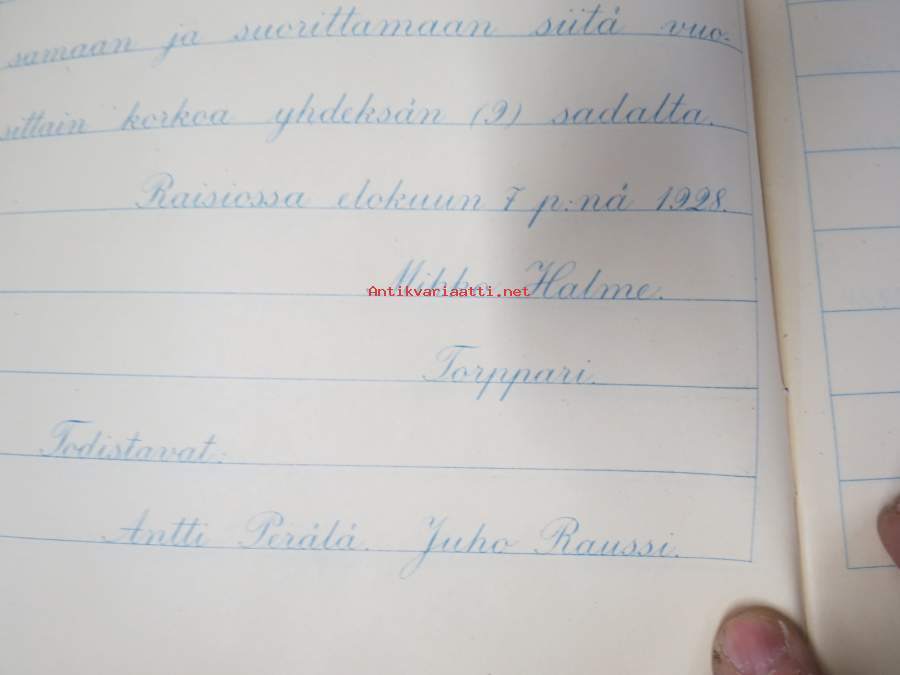 samaan ja suorittamaan siitä vuo-
sittain korkoa yhdeksän (9) sadalta.
Raisiossa elokuun 7 p:nä 1928.
Mikko Halme.
Antikvariaatti.net
Torppari.
Todistavat:
Antti Perälä. Juho Raussi.